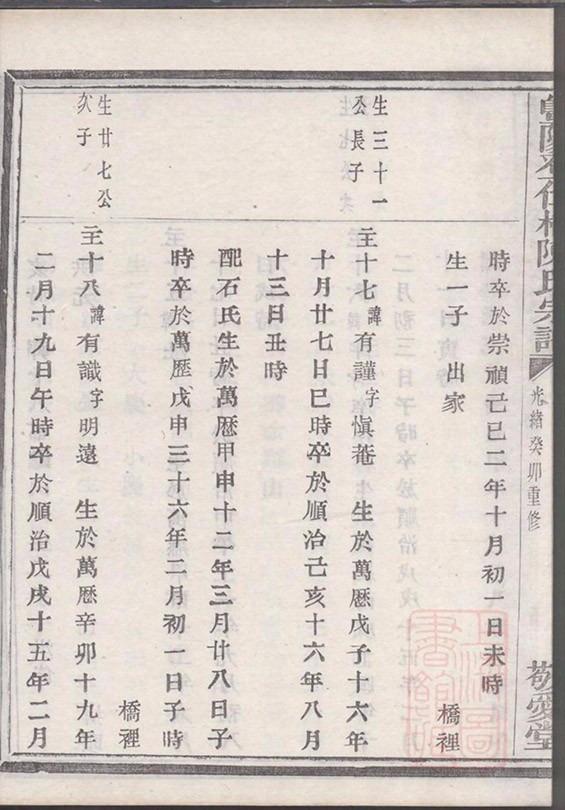 陳氏宗譜
光緒癸卯重修
敬愛堂
時卒於崇禎己巳二年十月初一日未時
生一子 出家 橋裡
生三十一
公長子
主十七諱有謹字愼菴 生於萬歷戊子十六年
十月廿七日巳時卒於順治己亥十六年八月
十三日丑時
配石氏生於萬歷甲申十二年三月廿八日子
時卒於萬歷戊申三十六年二月初一日子時
橋裡
生廿七公
次子
主十八諱有識字明遠 生於萬歷辛卯十九年
二月十九日午時卒於順治戊戌十五年二月